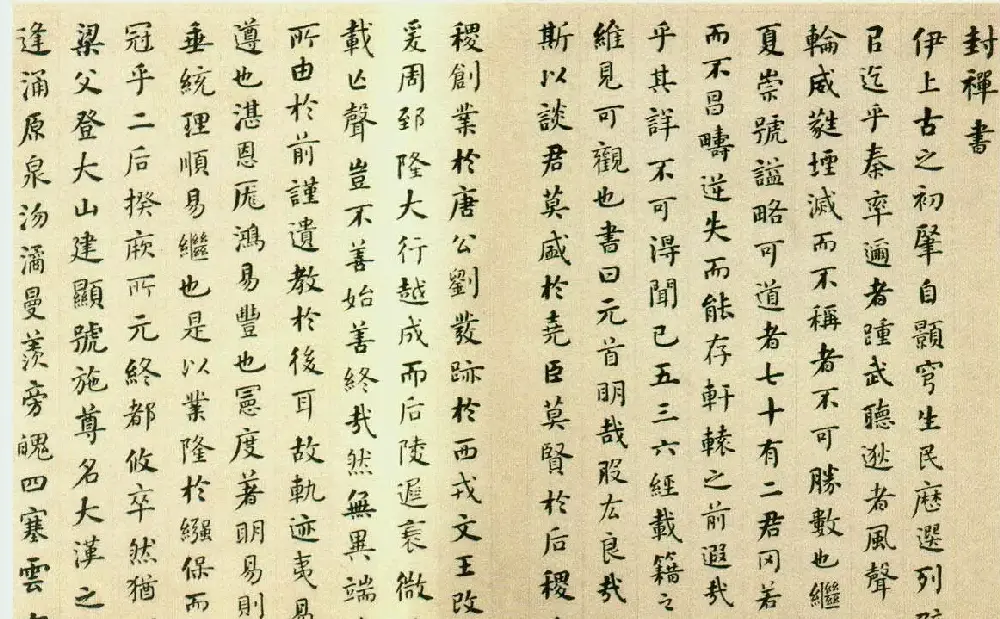 封禪書
伊上古之初肈自顥穹生民歷選列
以迄乎秦率邇者踵武聽逖者風聲
輪威蕤堙滅而不稱者不可勝數也繼
夏崇號諡略可道者七十有二君罔若
而不昌疇逆失而能存軒轅之前遐哉
乎其詳不可得聞已五三六經載籍之
維見可觀也書曰元首明哉股厷良哉
斯以談君莫盛於堯臣莫賢於后稷
稷創業於唐公劉發跡於西戎文王改
爰周郅隆大行越成而后陵遲衰微
載亡聲豈不善始善終哉然無異端
所由於前謹遺教於後耳故軌迹夷易
遵也湛恩厖鴻易豐也憲度著明易則
垂統理順易繼也是以業隆於繦保而
冠乎二后揆厥所元終都攸卒然猶
梁父登大山建顯號施尊名大漢之
逢涌原泉沕潏曼羨旁魄四塞雲